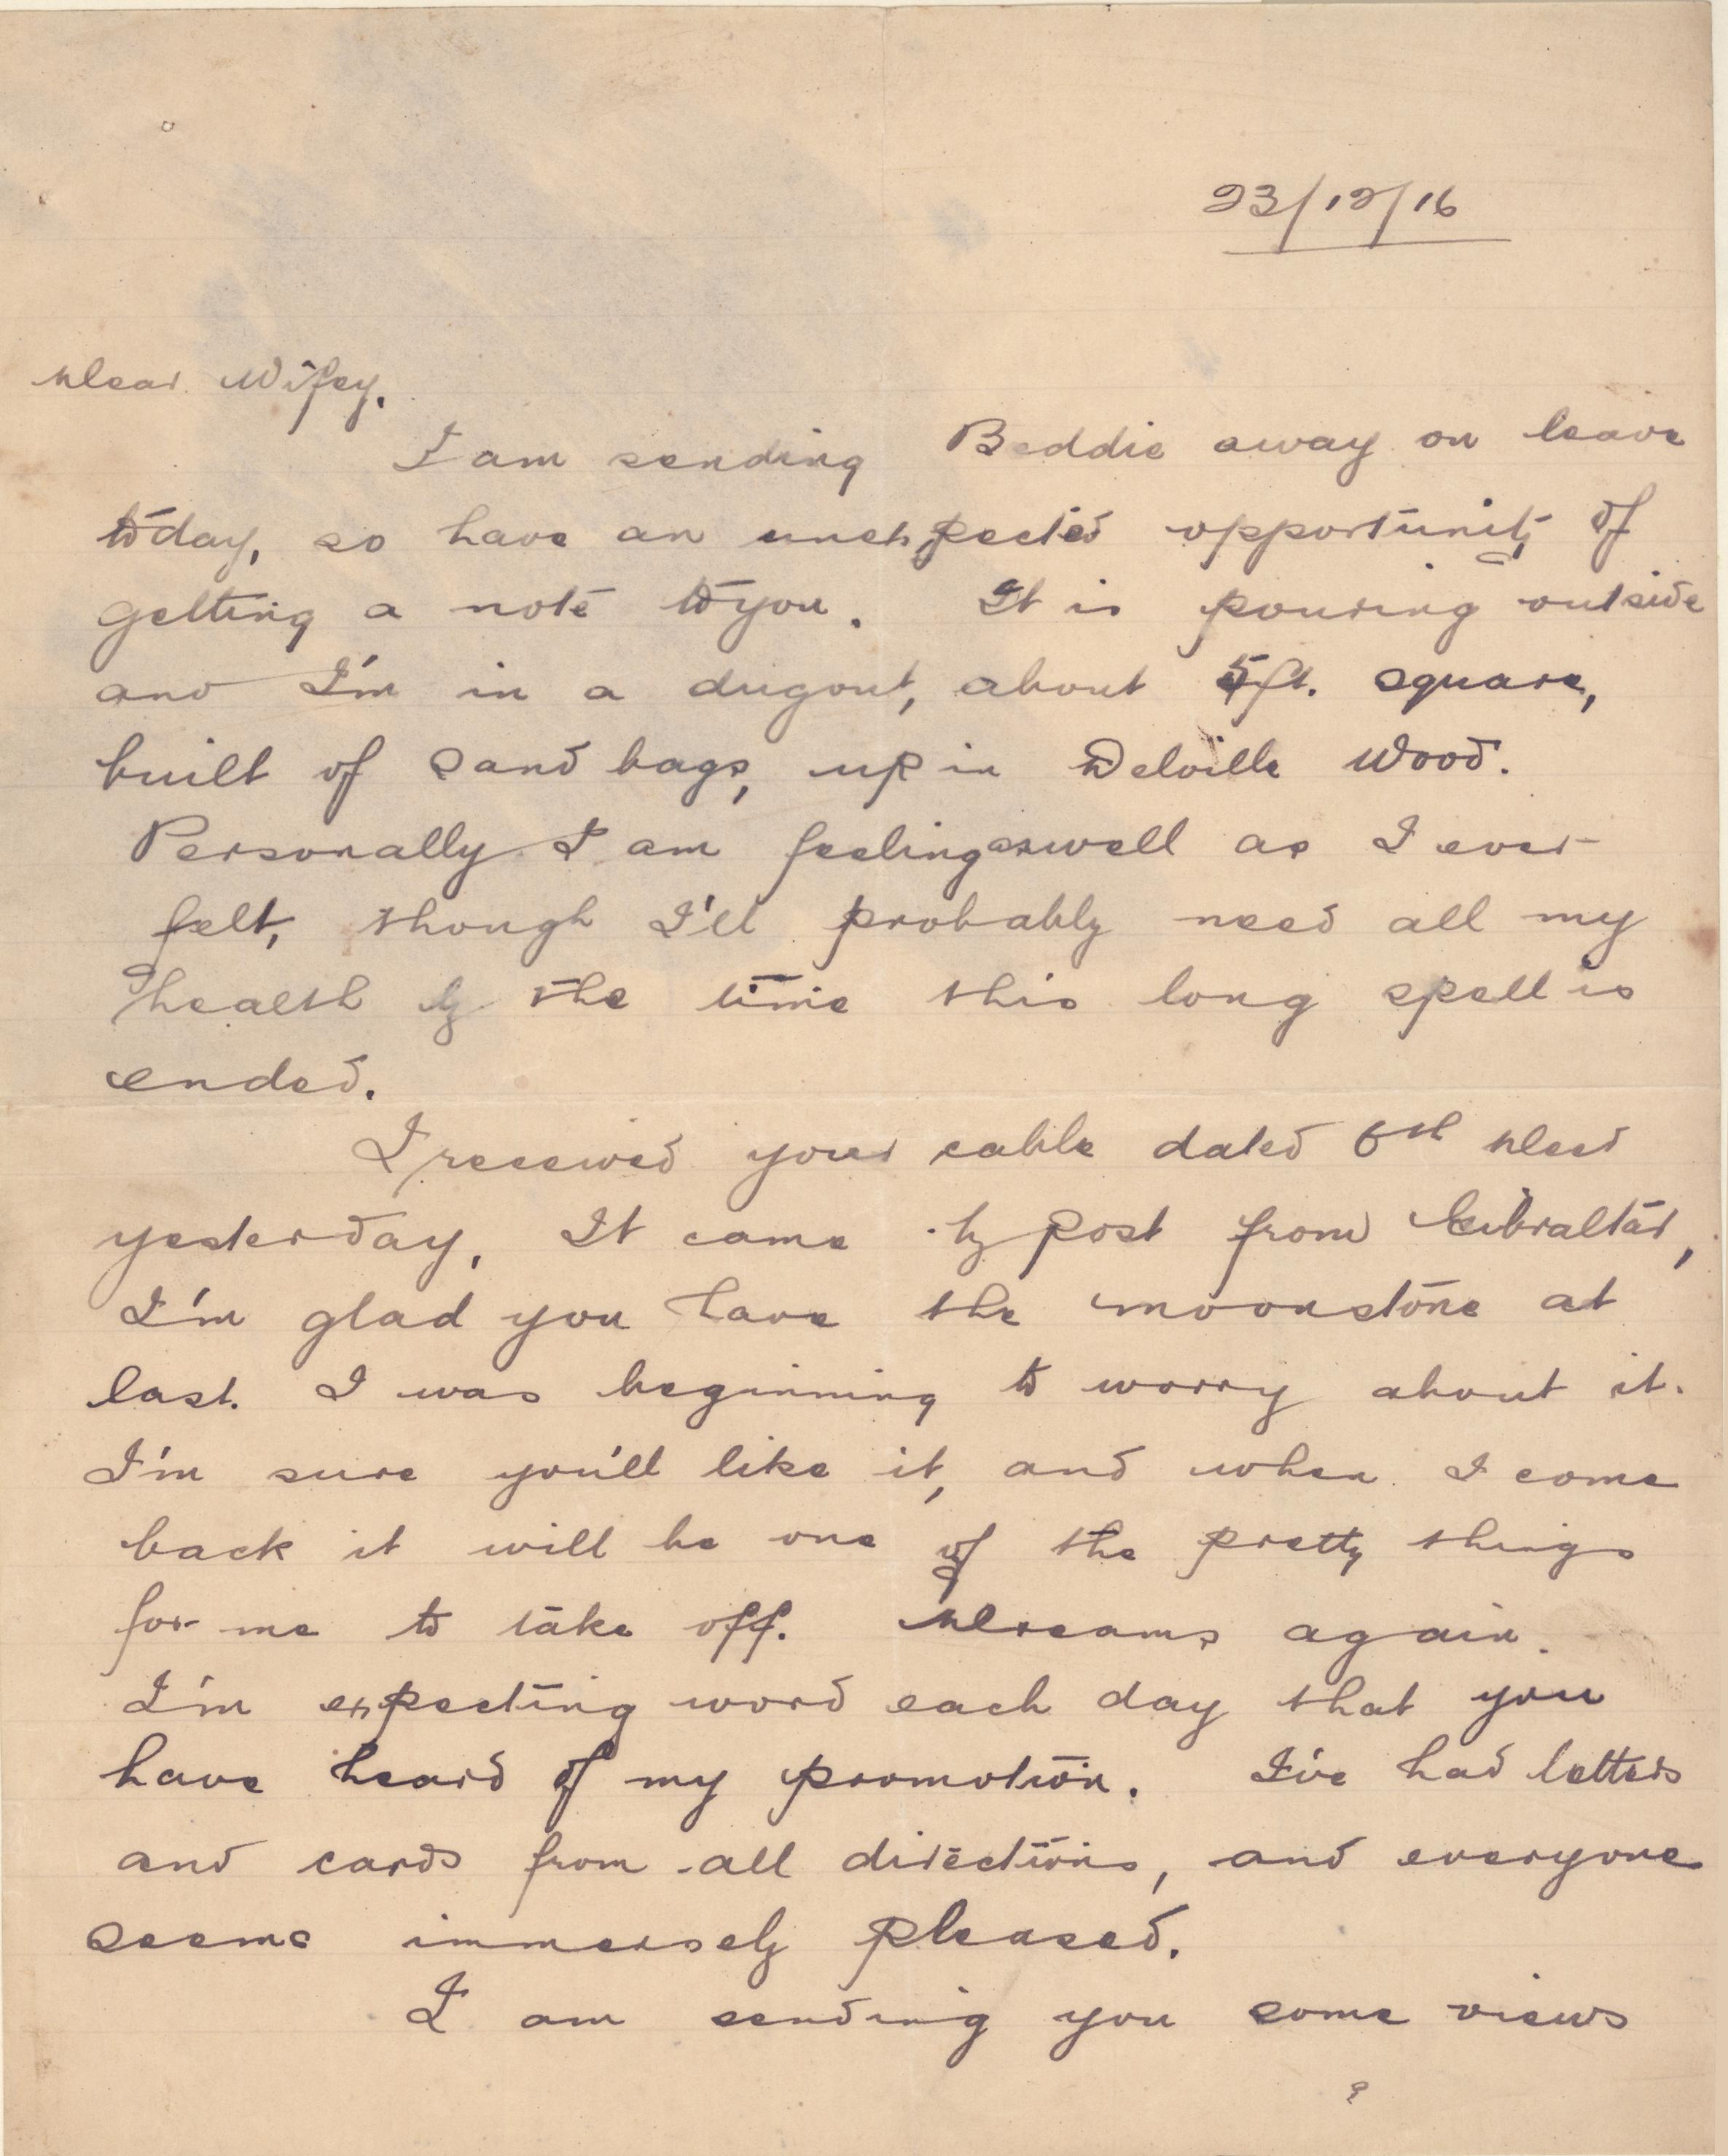 23/12/16
Dear Wifey,
I am sending Beddie away on leave
today, so have an unexpected opportunity of
getting a note to you. It is pouring outside
and I'm in a dugout, about 5ft. square,
built of sand bags, up in Delville Wood.
Personally I am feeling as well as I ever
felt, though I'll probably need all my
health by the time this long spell is
ended.
I received your cable dated 6th Decr
yesterday. It came by post from Gibraltar,
I'm glad you have the moonstone at
last. I was beginning to worry about it.
I'm sure you'll like it, and when I come
back it will be one of the pretty things
for me to take off. Dreams again.
I'm expecting word each day that you
have heard of my promotion. I've had letters
and cards from all directions, and everyone
seems immensely pleased.
I am sending you some views